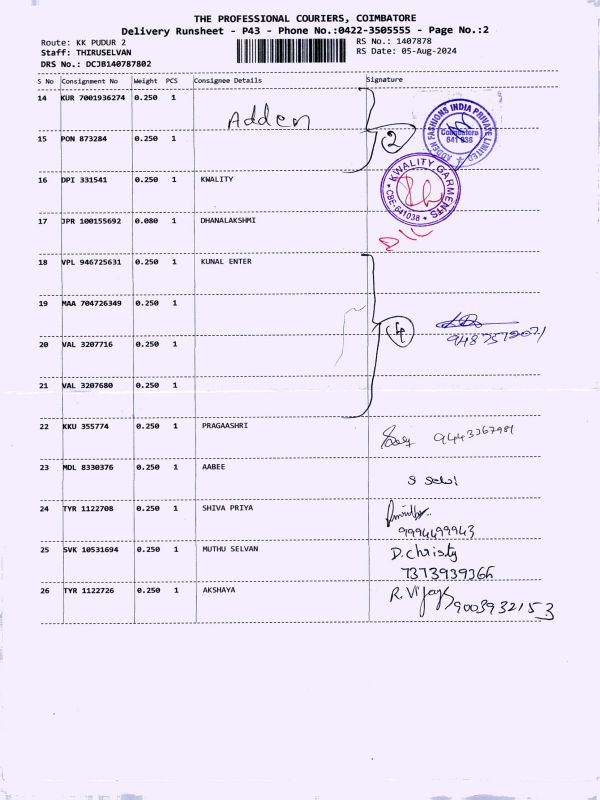 THE PROFESSIONAL COURIERS, COIMBATORE
Delivery Runsheet - P43 - Phone No.:0422-3505555 - Page No.:2
Route: KK PUDUR 2 RS No.: 1407878
Staff: THIRUSELVAN RS Date: 05-Aug-2024
DRS No.: DCJB140787802
S No Consignment No Weight PCS Consignee Details Signature
14 KUR 7001936274 0.250 1 Adden
ADDEN FASHIONS INDIA PRIVATE LIMITED
Coimbatore
641 038
15 PON 873284 0.250 1 2
16 DPI 331541 0.250 1 KWALITY
KWALITY GARMENTS
CBE-641038
17 JPR 100155692 0.080 1 DHANALAKSHMI
18 VPL 946725631 0.250 1 KUNAL ENTER
19 MAA 704726349 0.250 1
20 VAL 3207716 0.250 1 4
21 VAL 3207680 0.250 1
22 KKU 355774 0.250 1 PRAGAASHRI 9443367981
23 MDL 8330376 0.250 1 AABEE S Selvi
24 TYR 1122708 0.250 1 SHIVA PRIYA
9994499943
25 SVK 10531694 0.250 1 MUTHU SELVAN D. Christy
7373939366
26 TYR 1122726 0.250 1 AKSHAYA R. Vijay 9003932153